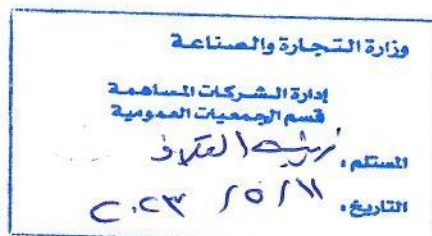 وزارة التجارة والصناعة
إدارة الشركات المساهمة
قسم الجمعيات العمومية
المستلم :
التاريخ : ١١ / ٥ / ٢٠٢٣